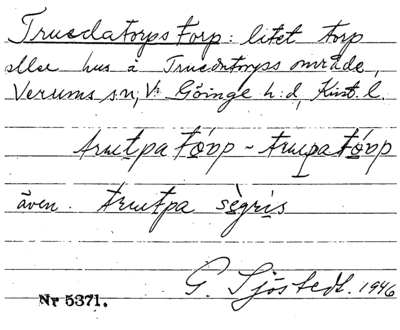 Truedatorps torp: litet torp
eller hus å Truedatorps område,
Verums sn, V. Göinge h:d, Krist. l.
trut̲pa tó̲rp - trupa tó̲rp
även. trut̲pa sè̲gri̲s
G. Sjöstedt. 1946
Nr 5371.